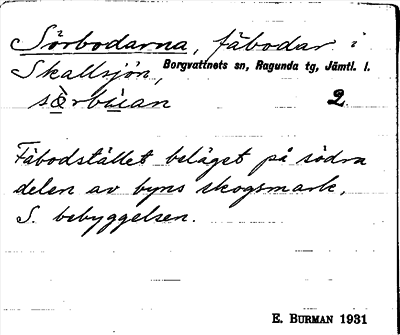 Sörbodarna, fäbodar i
Skallsjön, Borgvattnets sn, Ragunda tg, Jämtl. l.
sœ̀rbùan 2
Fäbodstället beläget på södra
delen av byns skogsmark,
S. bebyggelsen.
E. BURMAN 1931